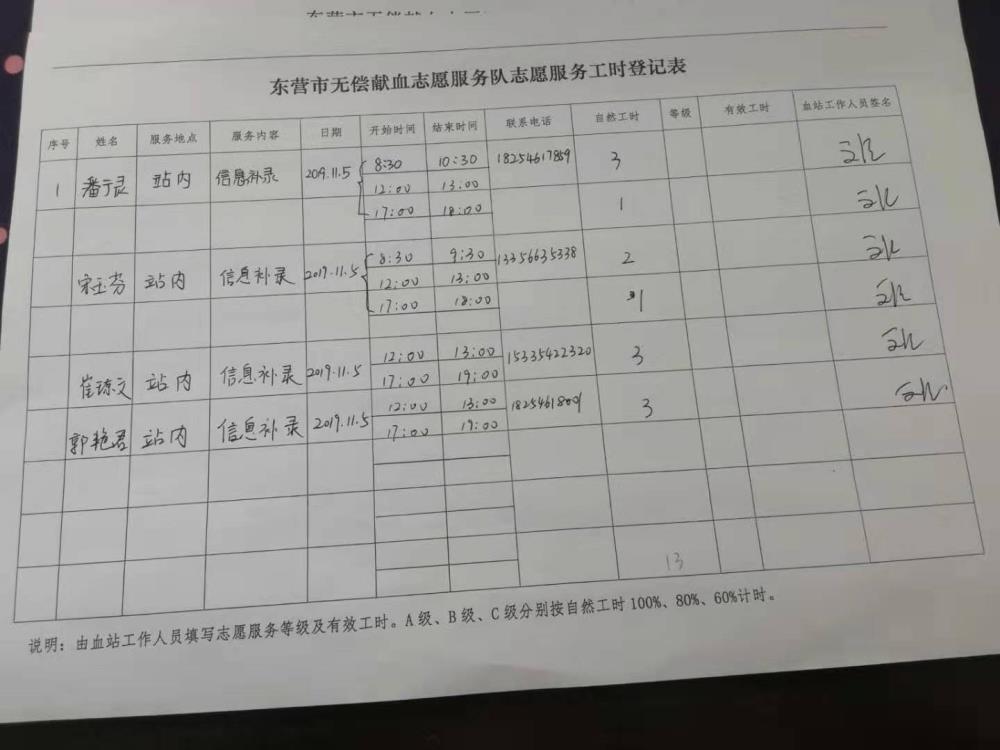 东营市无偿献血志愿服务队志愿服务工时登记表
序号 姓名 服务地点 服务内容 日期 开始时间 结束时间 联系电话 自然工时 等级 有效工时 血站工作人员签名
1 潘于灵 站内 信息补录 2019.11.5 8:30 10:30 18254617859 3
12:00 13:00
17:00 18:00 1
宋玉芬 站内 信息补录 2019.11.5 8:30 9:30 13356635338 2
12:00 13:00
17:00 18:00 1
崔琼文 站内 信息补录 2019.11.5 12:00 13:00 15335422320 3
17:00 19:00
郭艳君 站内 信息补录 2019.11.5 12:00 13:00 3
17:00 19:00
13
说明：由血站工作人员填写志愿服务等级及有效工时。A级、B级、C级分别按自然工时100%、80%、60%计时。